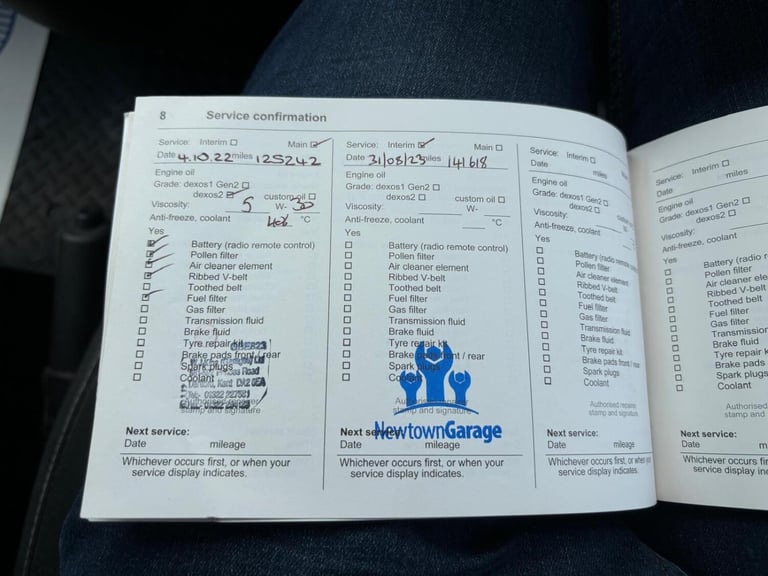 8 Service confirmation
Service: Interim Main
Date 4.10.22 miles 125242
Engine oil
Grade: dexos1 Gen2
dexos2 custom oil
Viscosity: 5 W- 30
Anti-freeze, coolant °C
Yes
Battery (radio remote control)
Pollen filter
Air cleaner element
Ribbed V-belt
Toothed belt
Fuel filter
Gas filter
Transmission fluid
Brake fluid
Tyre repair kit
Brake pads front / rear
Spark plugs
Coolant
Road
Kent DA2 6EA
Authorised repairer
stamp and signature
Next service:
Date mileage
Whichever occurs first, or when your
service display indicates.
Service: Interim Main
Date 31/08/23 miles 141618
Engine oil
Grade: dexos1 Gen2
dexos2 custom oil
Viscosity: W-
Anti-freeze, coolant °C
Yes
Battery (radio remote control)
Pollen filter
Air cleaner element
Ribbed V-belt
Toothed belt
Fuel filter
Gas filter
Transmission fluid
Brake fluid
Tyre repair kit
Brake pads front / rear
Spark plugs
Coolant
Authorised repairer
stamp and signature
NewtownGarage
Next service:
Date mileage
Whichever occurs first, or when your
service display indicates.
Service: Interim
Date miles
Engine oil
Grade: dexos1 Gen2
dexos2
Viscosity:
Anti-freeze, coolant
Yes
Battery (radio remote
Pollen filter
Air cleaner element
Ribbed V-belt
Toothed belt
Fuel filter
Gas filter
Transmission fluid
Brake fluid
Tyre repair kit
Brake pads front /
Spark plugs
Coolant
Authorised repairer
stamp and signature
Next service:
Date mileage
Whichever occurs first, or when your
service display indicates.
Service: Interim
Date miles
Engine oil
Grade: dexos1 Gen2
dexos2
Viscosity:
Anti-freeze, coolant
Yes
Battery (radio r
Pollen filter
Air cleaner ele
Ribbed V-belt
Toothed belt
Fuel filter
Gas filter
Transmission
Brake fluid
Tyre repair k
Brake pads
Spark plugs
Coolant
Authorised
stamp and
Next service:
Date m
Whichever occurs fir
service display in